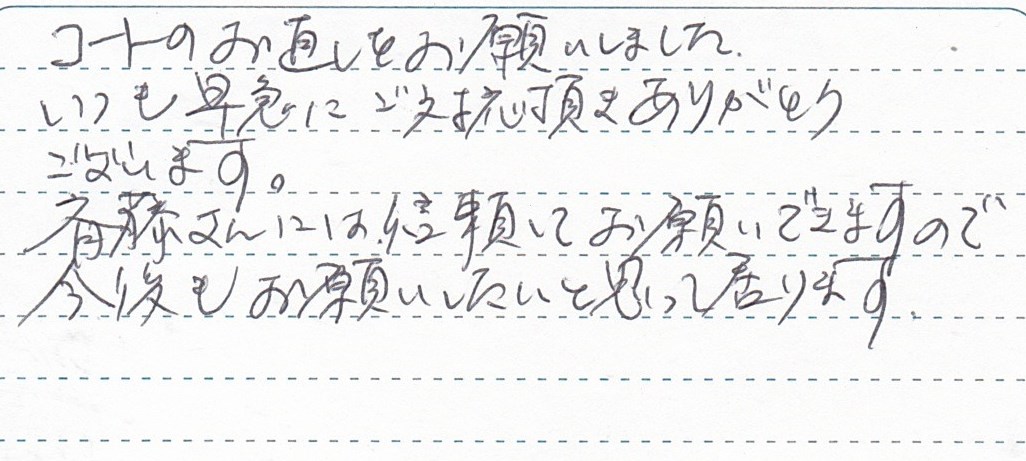 コートのお直しをお願いしました.
いつも早急にご対応頂きありがとう
ございます。
斉藤さんには信頼してお願いできますので
今後もお願いしたいと思って居ります.